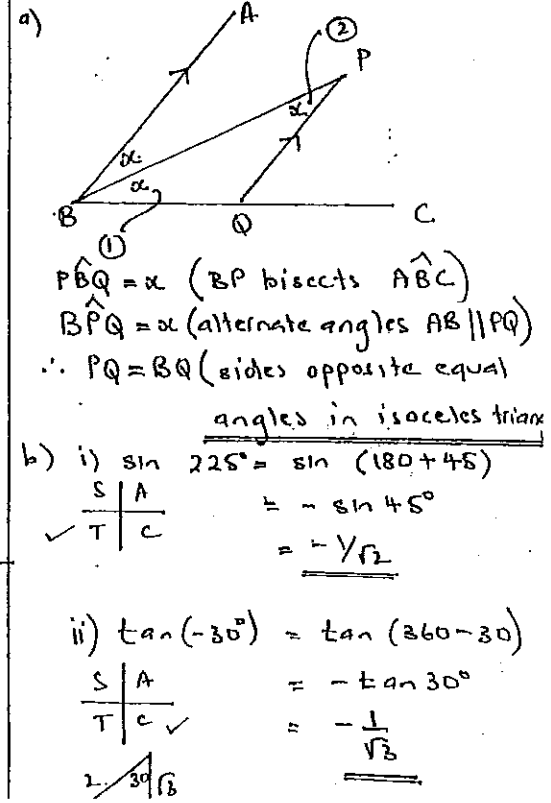 a)
A
②
P
x
x
x
B
Q
C
①
PB̂Q = x (BP bisects AB̂C)
BP̂Q = x (alternate angles AB || PQ)
∴ PQ = BQ (sides opposite equal
angles in isoceles trian
b) i) sin 225° = sin (180 + 45)
S | A
= - sin 45°
✓ T | C
= - 1/√2
ii) tan (-30°) = tan (360-30)
S | A
= - tan 30°
T | C ✓
= - 1/√3
2 30 √3